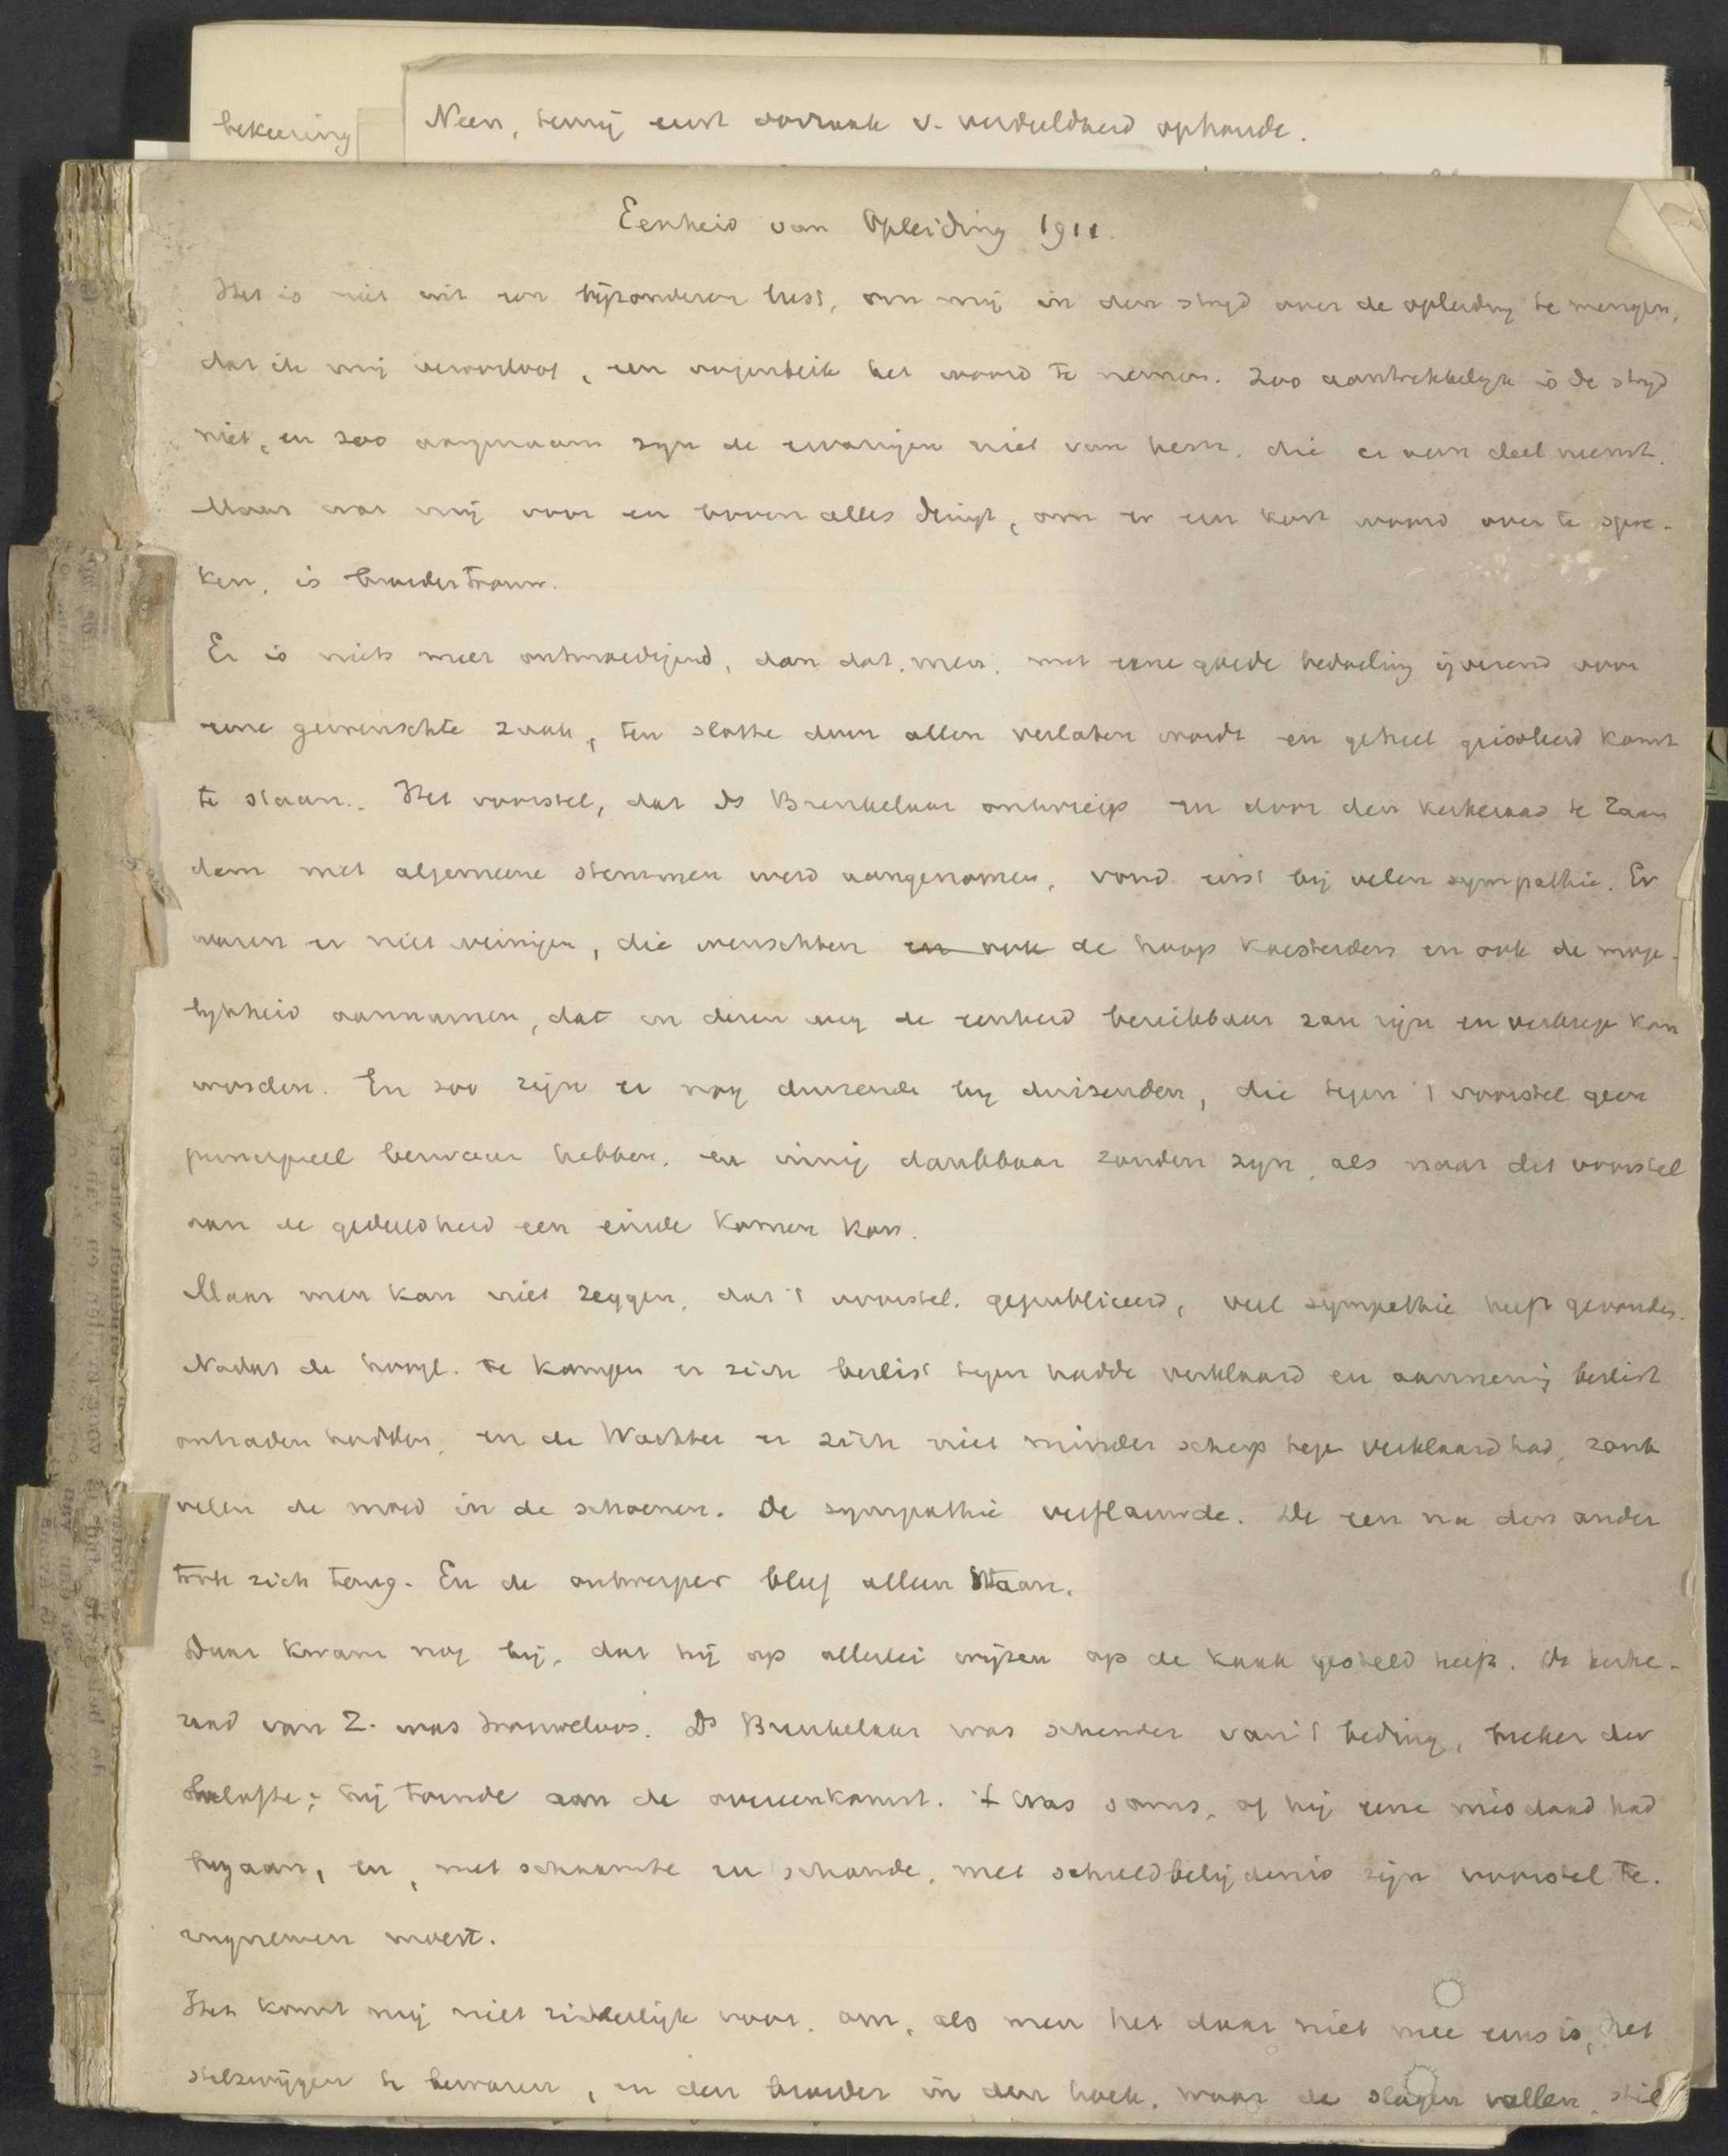 bekeering
Neen, tenzij eerst oorzaak v. verdeeldheid ophoude.
Eenheid van Opleiding 1911.
Het is niet uit een bijzonderen lust, om mij in den strijd over de opleiding te mengen,
dat ik mij veroorloof, een oogenblik het woord te nemen. Zoo aantrekkelijk is de strijd
niet, en zoo aangenaam zijn de ervaringen niet van hem, die er aan deel neemt.
Maar wat mij voor en boven alles dringt, om er een kort woord over te spre-
ken, is broedertrouw.
Er is niets meer ontmoedigend, dan dat, men, met eene goede bedoeling ijverend voor
eene gewenschte zaak, ten slotte door allen verlaten wordt en geheel geisoleerd komt
te staan. Het voorstel, dat Ds Brenkelaar ontwierp en door den kerkeraad te Zaan
dam met algemeene stemmen werd aangenomen, vond eerst bij velen sympathie. Er
waren er niet weinigen, die wenschten en ook de hoop koesterden en ook de moge-
lijkheid aannamen, dat in dezen weg de eenheid bereikbaar zou zijn en verkregen kon
worden. En zoo zijn er nog duizende bij duizenden, die tegen 't voorstel geen
principieel bezwaar hebben, en innig dankbaar zouden zijn, als naar dit voorstel
aan de gedeeldheid een einde komen kon.
Maar men kan niet zeggen, dat 't voorstel, gepubliceerd, veel sympathie heeft gevonden.
Nadat de hoogl. te Kampen er zich beslist tegen hadde verklaard en aanneming beslist
ontraden hadden, en de Wachter er zich niet minder scherp tegen verklaard had, zonk
velen de moed in de schoenen. De sympathie verflauwde. De een na den ander
trok zich terug. En de ontwerper bleef alleen staan.
Daar kwam nog bij, dat hij op allerlei wijzen op de kaak gesteld heeft. De kerke-
raad van Z. was trouweloos. Ds Brenkelaar was schender van 't beding, breker der
belofte; hij tornde aan de overeenkomst. 't Was soms, of hij eene misdaad had
begaan, en, met schaamte en schande, met schuldbelijdenis zijn voorstel te-
rugnemen moest.
Het komt mij niet ridderlijk voor, om, als men het daar niet mee eens is, het
stilzwijgen te bewaren, en den broeder in den hoek, waar de slagen vallen, stil